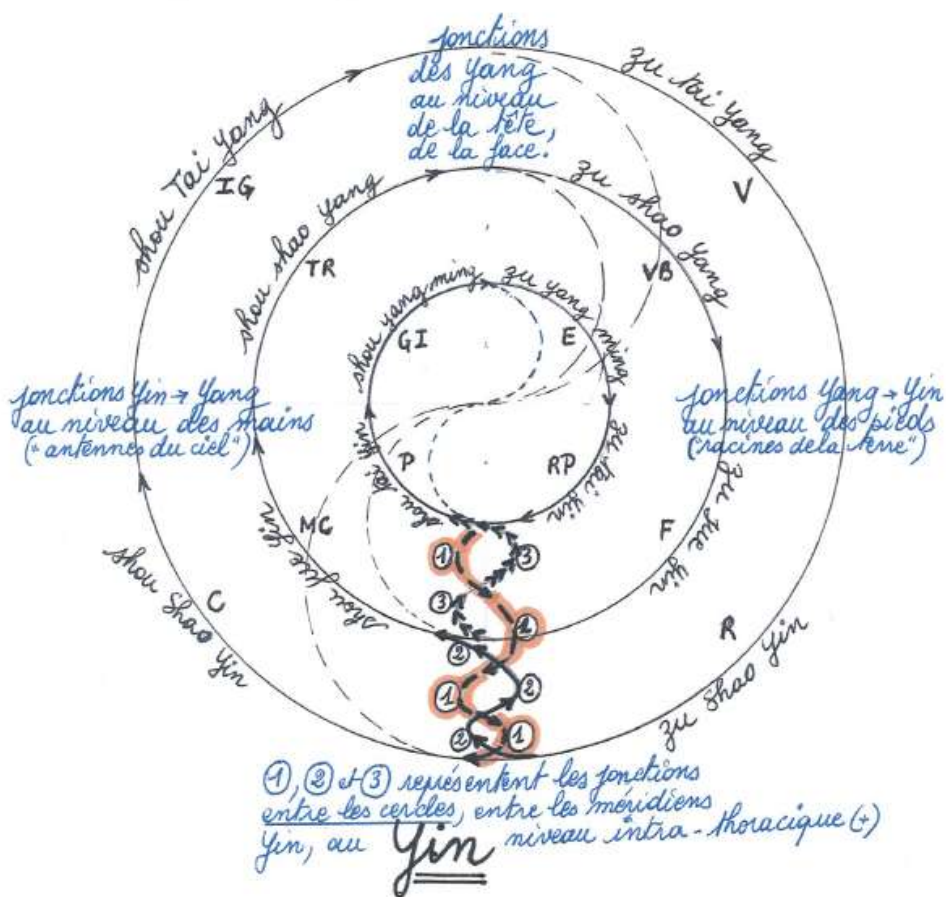 jonctions
des Yang
au niveau
de la tête,
de la face.
shou Tai Yang
IG
zu tai yang
V
shou shao yang
TR
zu shao yang
VB
shou yang ming
GI
zu yang ming
E
jonctions Yin → Yang
au niveau des mains
("antennes du ciel")
jonctions Yang → Yin
au niveau des pieds
("racines de la terre")
P
shou tai yin
RP
zu tai yin
MC
shou jue yin
F
zu jue yin
C
shou shao Yin
R
zu shao Yin
1
3
3
1
2
1
2
2
1
①, ② et ③ représentent les jonctions
entre les cercles, entre les méridiens
Yin, au niveau intra-thoracique (+)
Yin